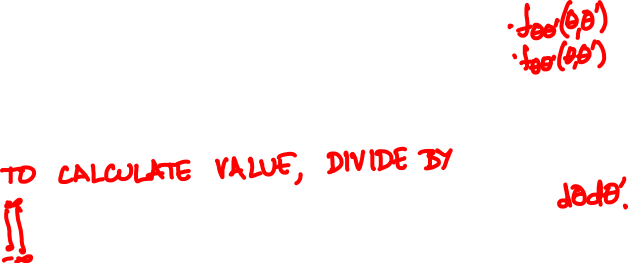 · f_θθ'(θ,θ')
· f_θθ'(θ,θ')
TO CALCULATE VALUE, DIVIDE BY
∬ dθdθ'.
-∞